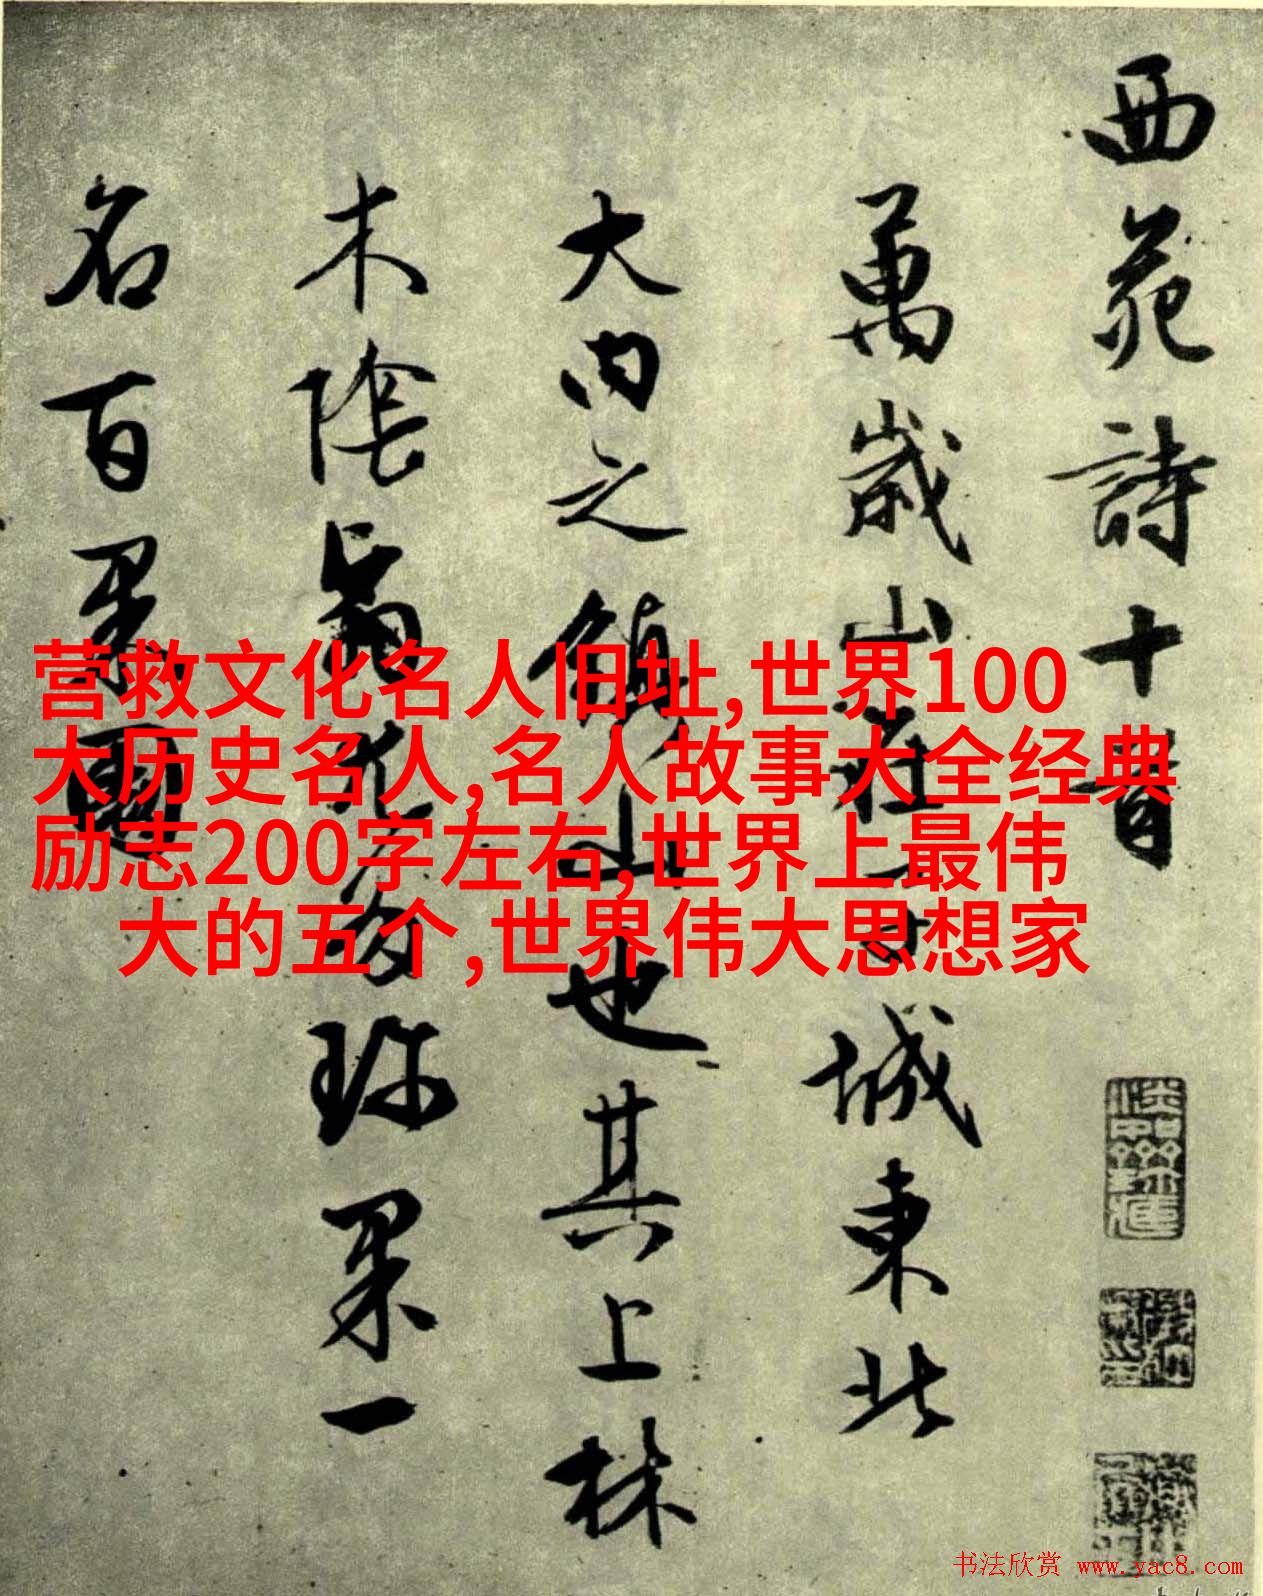 西苑詩十首
萬歲山在子城東北
大内之鎮山也其上林
木陰翳尤多珍果一
名百果園
营救文化名人旧址,世界100
大历史名人,名人故事大全经典
励志200字左右,世界上最伟
大的五个,世界伟大思想家
书法欣赏 www.yac8.com